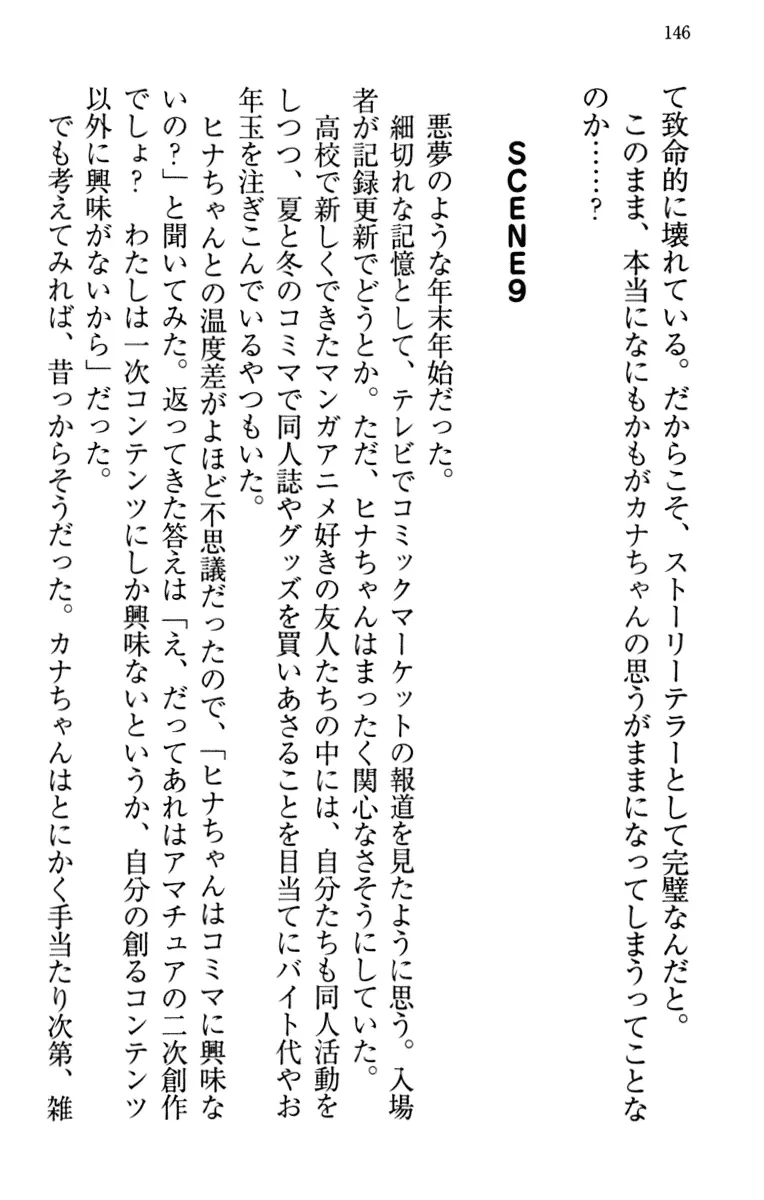 146
て致命的に壊れている。だからこそ、ストーリーテラーとして完璧なんだと。
　このまま、本当になにもかもがカナちゃんの思うがままになってしまうってことな
のか……？
SCENE9
　悪夢のような年末年始だった。
　細切れな記憶として、テレビでコミックマーケットの報道を見たように思う。入場
者が記録更新でどうとか。ただ、ヒナちゃんはまったく関心なさそうにしていた。
　高校で新しくできたマンガアニメ好きの友人たちの中には、自分たちも同人活動を
しつつ、夏と冬のコミマで同人誌やグッズを買いあさることを目当てにバイト代やお
年玉を注ぎこんでいるやつもいた。
　ヒナちゃんとの温度差がよほど不思議だったので、「ヒナちゃんはコミマに興味な
いの？」と聞いてみた。返ってきた答えは「え、だってあれはアマチュアの二次創作
でしょ？　わたしは一次コンテンツにしか興味ないというか、自分の創るコンテンツ
以外に興味がないから」だった。
　でも考えてみれば、昔っからそうだった。カナちゃんはとにかく手当たり次第、雑